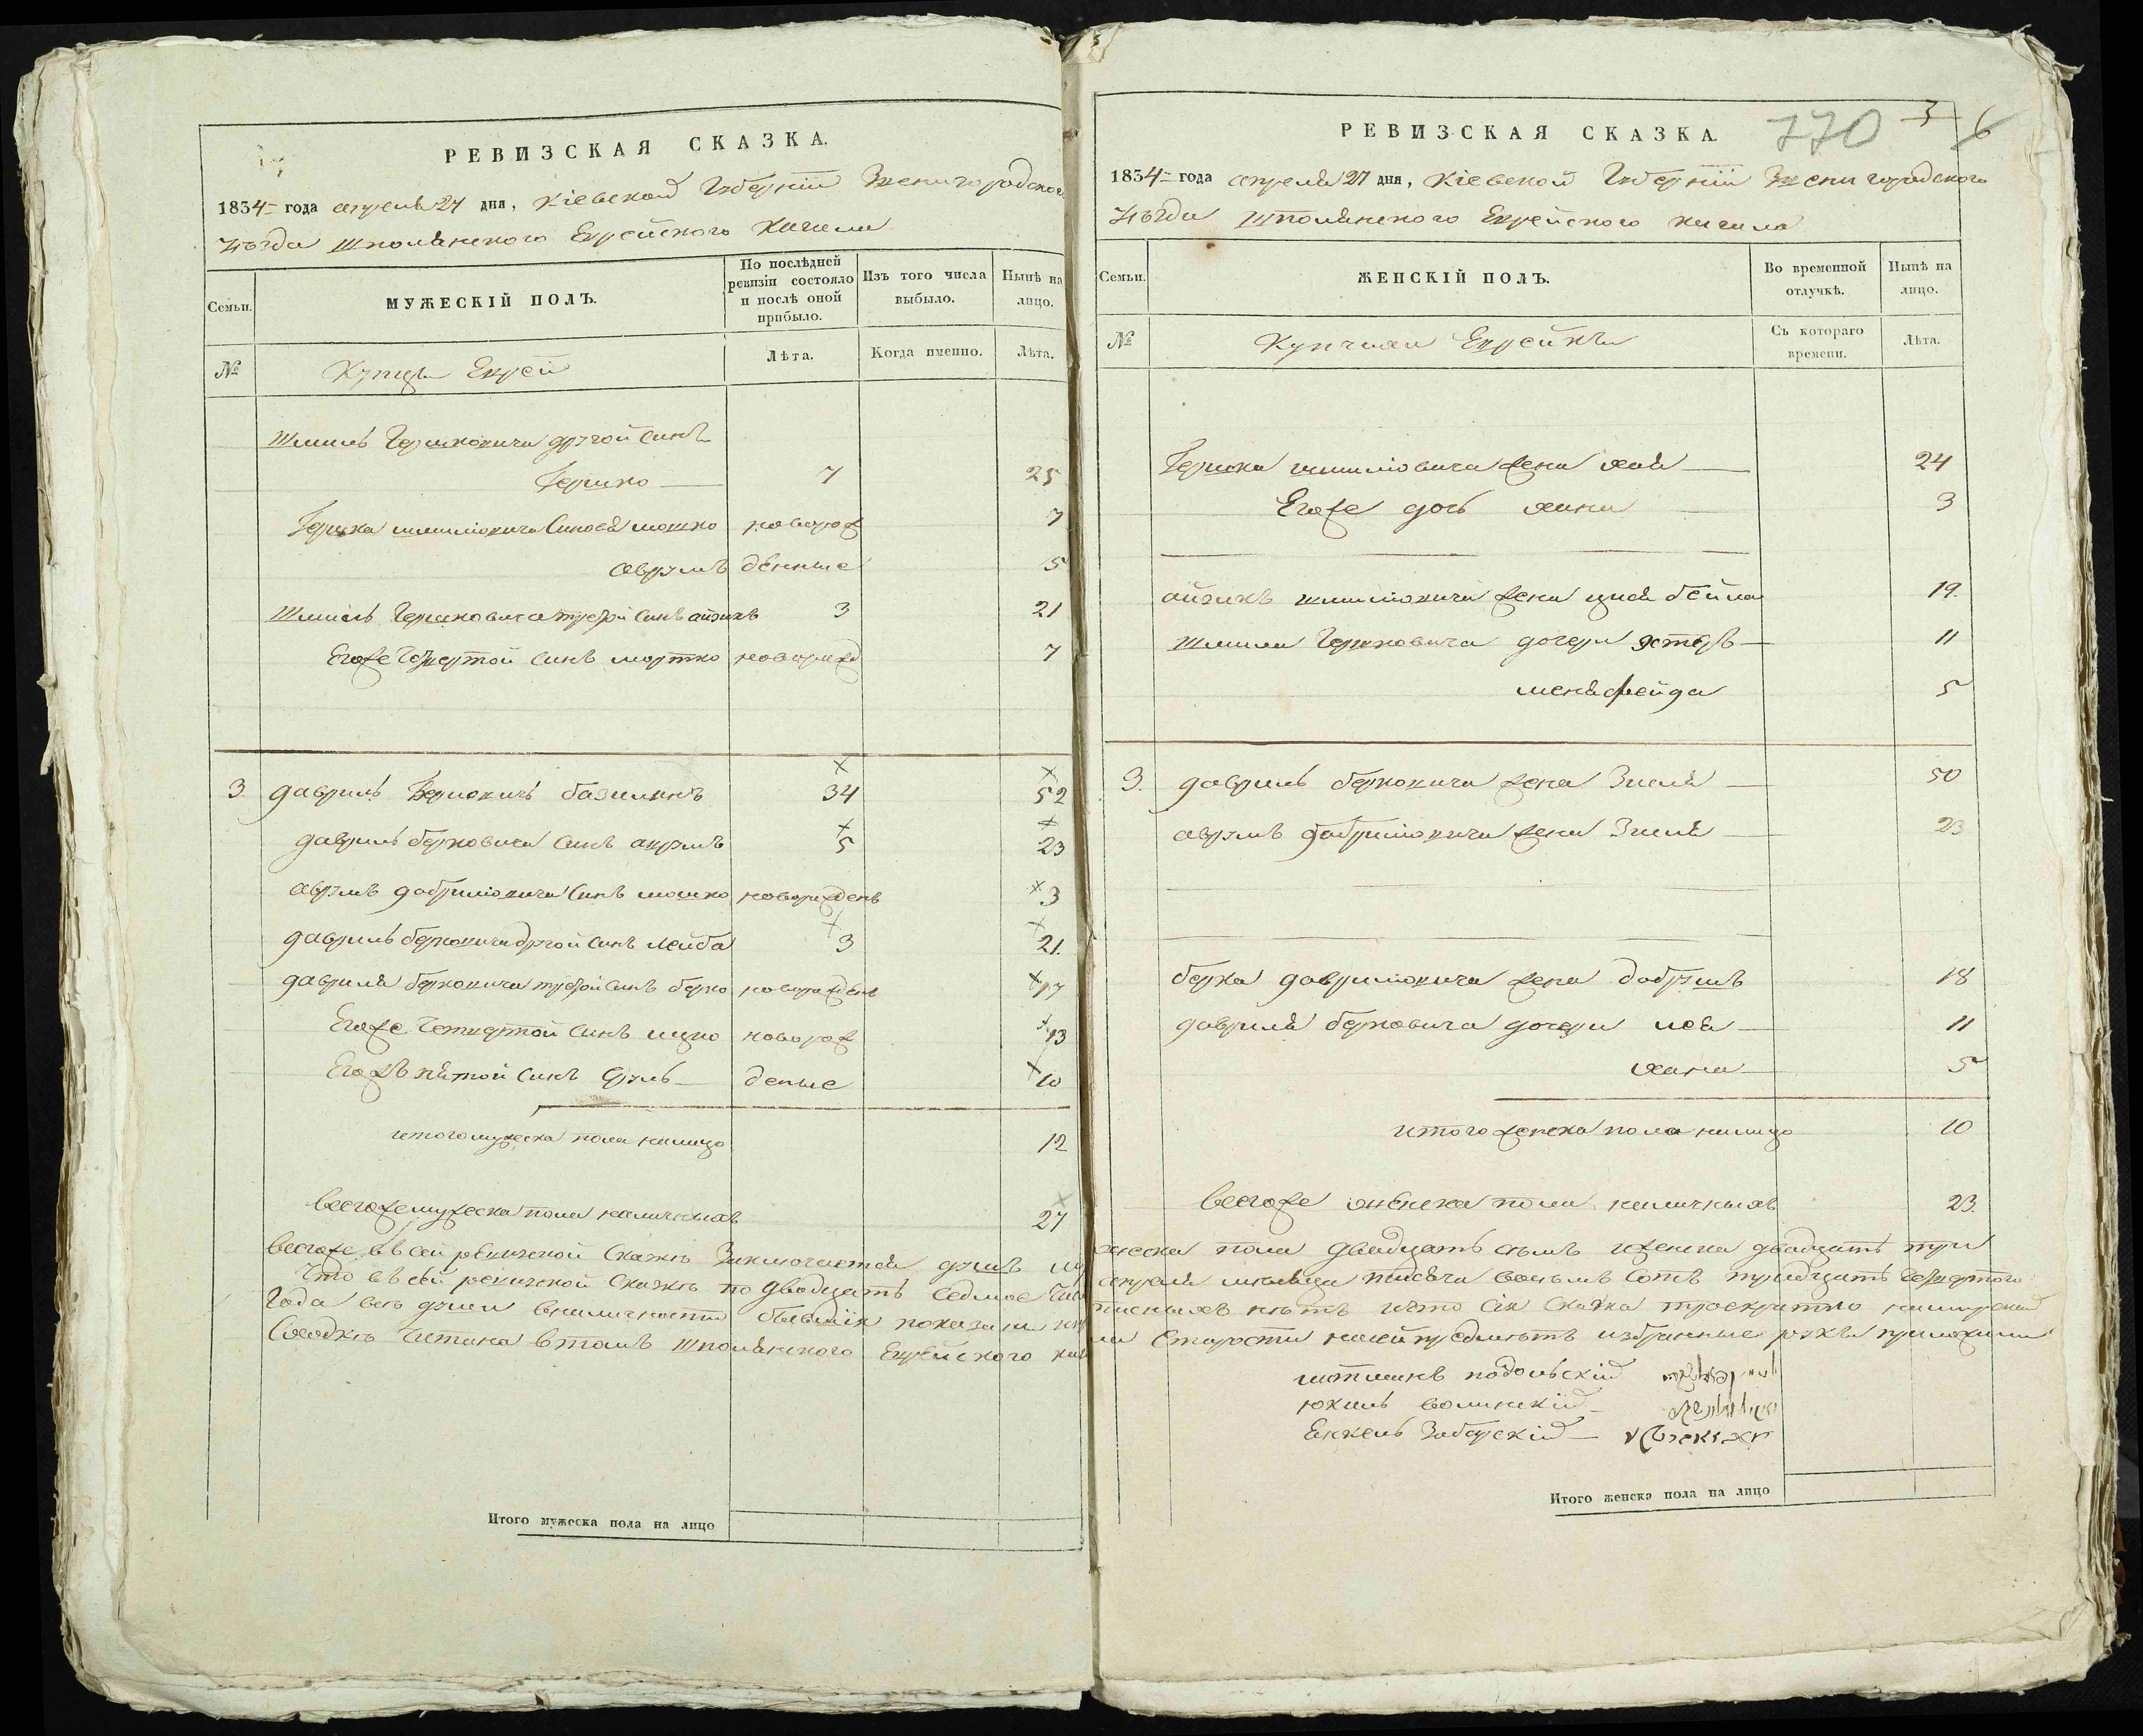 РЕВИЗСКАЯ СКАЗКА.
1834 года апреля 27 дня, Кіевской Губерніи Звенигородского
Уѣзда Шполянского Еврейского Кагала
Семьи.
МУЖЕСКІЙ ПОЛЪ.
По послѣдней ревизіи состояло и послѣ оной прибыло.
Изъ того числа выбыло.
Нынѣ на лицо.
№
Купцы Евреи
Лѣта.
Когда именно.
Лѣта.
Шмиль Гершковича другой синъ
Гершко 7 25
Гершка шмиліовича Синовя мошко новорож 7
аврумъденные 5
Шмиль Гершковича третой синъ айзикъ 3 21
Егоже Четвертой синъ мортко новорожд 7
3. давриль Берковичъ базилинъ 34 52
давриль берковича синъ аврумъ 5 23
аврумъ давриліовича синъ мошко новорожденъ 3
давриль берковича другой синъ лейба 3 21.
давриля берковича третой синъ берко новорожденъ 17
Егоже Четвертой синъ ицко новорож 13
Егожъ пятой синъ сруль деные 10
итого мужеска пола налицо 12
Всегоже мужеска пола наличныхъ 27
Итого мужеска пола на лицо
770 3 6
РЕВИЗСКАЯ СКАЗКА.
1834 года апреля 27 дня, Кіевской Губерніи Звенигородского
Уѣзда Шполянского Еврейского кагала
Семьи.
ЖЕНСКІЙ ПОЛЪ.
Во временной отлучкѣ.
Нынѣ на лицо.
№
Купчихи Еврейкѣ
Съ котораго времени.
Лѣта.
Гершка шмиліовича жена хая 24
Егоже дочь хана 3
айзикъ шмиліовича жена цыя бейла 19.
Шмиля Гершковича дочери эстеръ 11
меня фейда 5
3. давриль берковича жена Зисля 50
аврумъ давриліовича жена Зисля 23
берка давриліовича жена добрушъ 18
давриля берковича дочери лея 11
хана 5
итого женска пола налицо 10
Всегоже женска пола наличныхъ 23.
Всегоже въ сей ревизской Сказкѣ Заключается душъ мужеска пола двадцать семъ и женска двадцать три
Что въ сей ревизской Сказкѣ по двадцать Седмое Число апреля месяца тисяча восемъ сотъ тридцать Четвертого
Года всѣ души вналичности бывшія показани и прописныхъ нѣтъ и что сія Сказка
Шполянского Еврейского избранные рукѣ приложили
шотликъ подольскій
юкиль волинскій
Енкель Заборскій
Итого женска пола на лицо